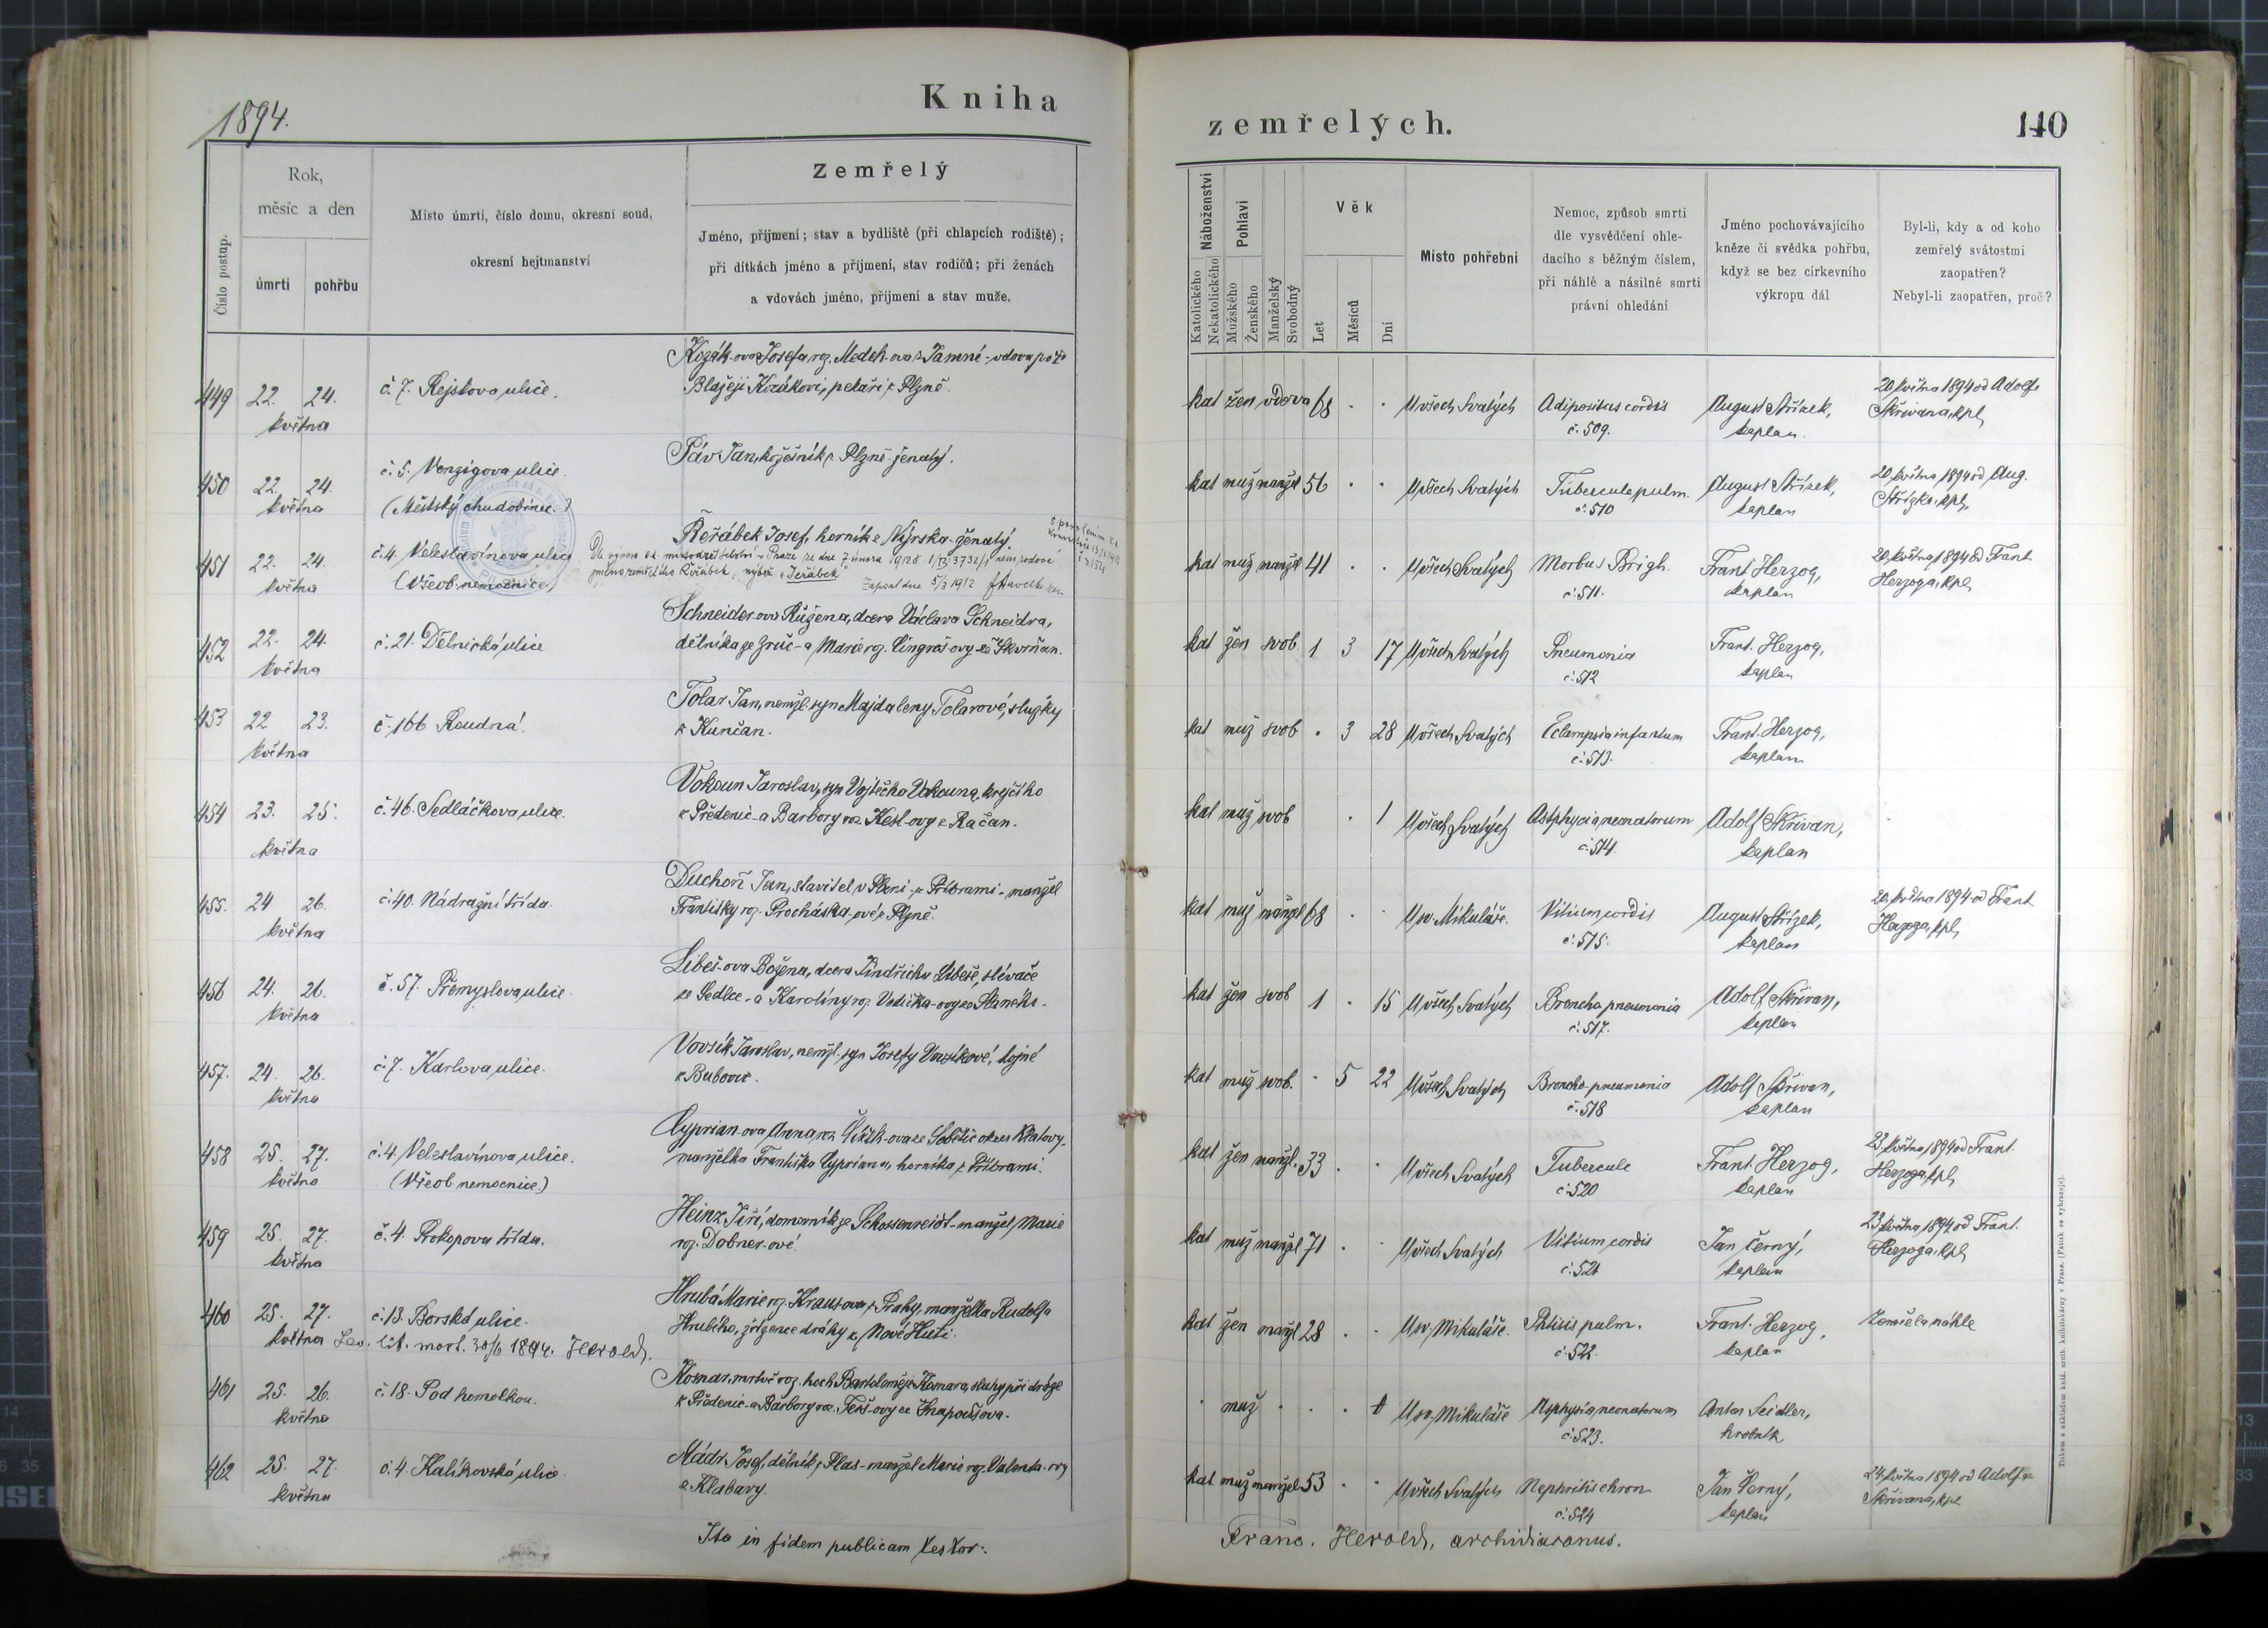 1894.
Kniha
Číslo postup.
Rok,
měsíc a den
úmrtí
pohřbu
Místo úmrtí, číslo domu, okresní soud,
okresní hejtmanství
Zemřelý
Jméno, příjmení; stav a bydliště (při chlapcích rodiště);
při dítkách jméno a příjmení, stav rodičů; při ženách
a vdovách jméno, příjmení a stav muže.
449 22. 24. č. 7. Rejskova ulice.
května
Kozák-ova Josefa roz. Medek-ova z Jamné - vdova po
Blažeji Kozákovi, pekaři z Plzně.
450 22 24. č. 5. Venzigova ulice.
května (Městský chudobinec.)
Páv Jan, kožešník z Plzně ženatý.
451 22. 24. č. 4. Veleslavínova ulice
května (Všeob. nemocnice)
Řeřábek Josef, horník z Nýrska - ženatý
jméno zemřelého Řeřábek, nýbrž „Jeřábek“
Zapsal dne 5/3 1912
452 22. 24. č. 21. Dělnická ulice
května
Schneider-ova Růžena, dcera Václava Schneidra,
dělníka ze Zruč - a Marie roz. Cingroš-ovy ze Skvrňan.
453 22 23. č. 166 Roudná.
května
Tolar Jan, nemžl. syn Majdaleny Tolarové, služky
z Kunčan.
454 23. 25. č. 46. Sedláčkova ulice.
května
Vokoun Jaroslav, syn Vojtěcha Vokouna, krejčího
z Předenic - a Barbory roz. Kesl-ovy z Račan.
455. 24 26. č. 40. Nádražní třída.
května
Duchoň Jan, stavitel v Plzni - z Příbrami - manžel
Františky roz. Procházka-ové z Plzně.
456 24. 26. č. 57. Přemyslova ulice.
května
Libeš-ova Božena, dcera Jindřicha Libeše, slévače
ze Sedlce - a Karolíny roz. Vodička-ovy ze
457. 24. 26. č. 7. Karlova ulice.
května
Vovsík Jaroslav, nemžl. syn Josefy Vovsíkové,
z Bubovic.
458 25. 27. č. 4. Veleslavínova ulice.
května (Všeob. nemocnice.)
Cyprian-ova Anna roz. ze Sobětic okres Klatovy -
manželka Františka Cypriana, horníka z Příbrami.
459 25. 27. č. 4. Prokopova třída.
května
Heinz Jiří, domovník ze Schossenreist - manžel Marie
roz. Dobner-ové.
460 25. 27. č. 13. Borská ulice.
května Lev. lit. mort. 30/6 1894. Herold.
Hrubá Marie roz. Kraus-ova z Prahy, manželka Rudolfa
Hrubého, zřízence dráhy z Nové Huti.
461 25. 26. č. 18. Pod homolkou.
května
Kosnar, mrtvě roz. hoch Bartoloměje Kosnara, sluhy při dráze
z Předenic - a Barbory roz. Terš-ovy ze Šnapoušova.
462 25. 27. č. 4. Kalikovská ulice.
května
Mádr Josef, dělník z Plas - manžel Marie roz. Valenta-ovy
z Klabavy.
Ita in fidem publicam testor:
zemřelých.
140
Náboženství
Katolického
Nekatolického
Pohlaví
Mužského
Ženského
Manželský
Svobodný
Věk
Let
Měsíců
Dní
Místo pohřební
Nemoc, způsob smrti
dle vysvědčení ohle-
dacího s běžným číslem,
při náhlé a násilné smrti
právní ohledání
Jméno pochovávajícího
kněze či svědka pohřbu,
když se bez církevního
výkropu dál
Byl-li, kdy a od koho
zemřelý svátostmi
zaopatřen?
Nebyl-li zaopatřen, proč?
kat žen vdova 68 . . U všech Svatých Adipositas cordis August Střízek, 20. května 1894 od Adolfa
č. 509. kaplan. Skřivana, kpl.
kat muž manžel 56 . . U všech Svatých Tubercule pulm. August Střízek, 20. května 1894 od Aug.
č. 510 kaplan Střízka, kpl.
kat muž manžel 41 . . U všech Svatých Morbus Brigh. Frant. Herzog, 20. května 1894 od Frant.
č. 511. kaplan Herzoga, kpl.
kat žen svob. 1 3 17 U všech Svatých Pneumonia Frant. Herzog,
č. 512 kaplan
kat muž svob . 3 28 U všech Svatých Eclampsia infantum Frant. Herzog,
č. 513. kaplan
kat muž svob . 1 U všech Svatých Astphycia neonatorum Adolf Skřivan,
č. 514. kaplan
kat muž manžel 68 . . U sv. Mikuláše. Vitium cordis August Střízek, 20. května 1894 od Frant
č. 515. kaplan Herzoga, kpl.
kat žen svob 1 . 15 U všech Svatých Broncho pneumonia Adolf Skřivan,
č. 517. kaplan
kat muž svob. . 5 22 U všech Svatých Broncho-pneumonia Adolf Skřivan,
č. 518 kaplan
kat žen manžl. 33 . . U všech Svatých Tubercule Frant. Herzog, 23. května 1894 od Frant.
č. 520 kaplan Herzoga, kpl.
kat muž manžel 71 . . U všech Svatých Vitium cordis Jan Černý, 23. května 1894 od Frant.
č. 521 kaplan Herzoga, kpl.
kat žen manžl 28 . . U sv. Mikuláše. Phtisis pulm. Frant. Herzog, Zemřela náhle
č. 522. kaplan
. muž . . . U sv. Mikuláše Asphyxia neonatorum Anton Seidler,
č. 523. hrobník
kat muž manžel 53 . . U všech Svatých Nephritis chron Jan Černý, 24. května 1894 od Adolfa
č. 524 kaplan Skřivana, kpl.
Franc. Herold, archidiaconus.